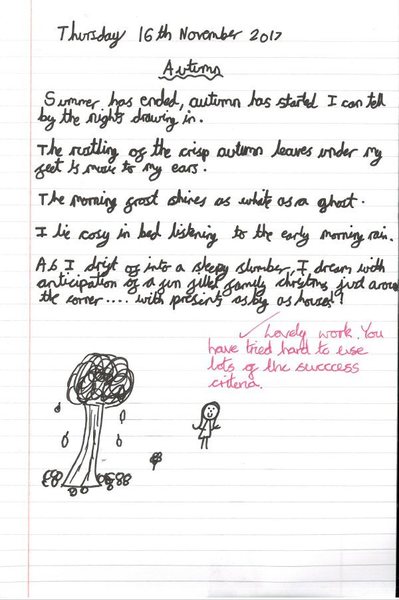 Thursday 16th November 2017
Autumn
Summer has ended, autumn has started I can tell
by the nights drawing in.
The rustling of the crisp autumn leaves under my
feet is music to my ears.
The morning frost shines as white as a ghost.
I lie cosy in bed listening to the early morning rain.
As I drift of into a sleepy slumber, I dream with
anticipation of a fun filled family christmas just around
the corner.... with presents as big as a house!!
✓ Lovely work. You
have tried hard to use
lots of the succcess
criteria.